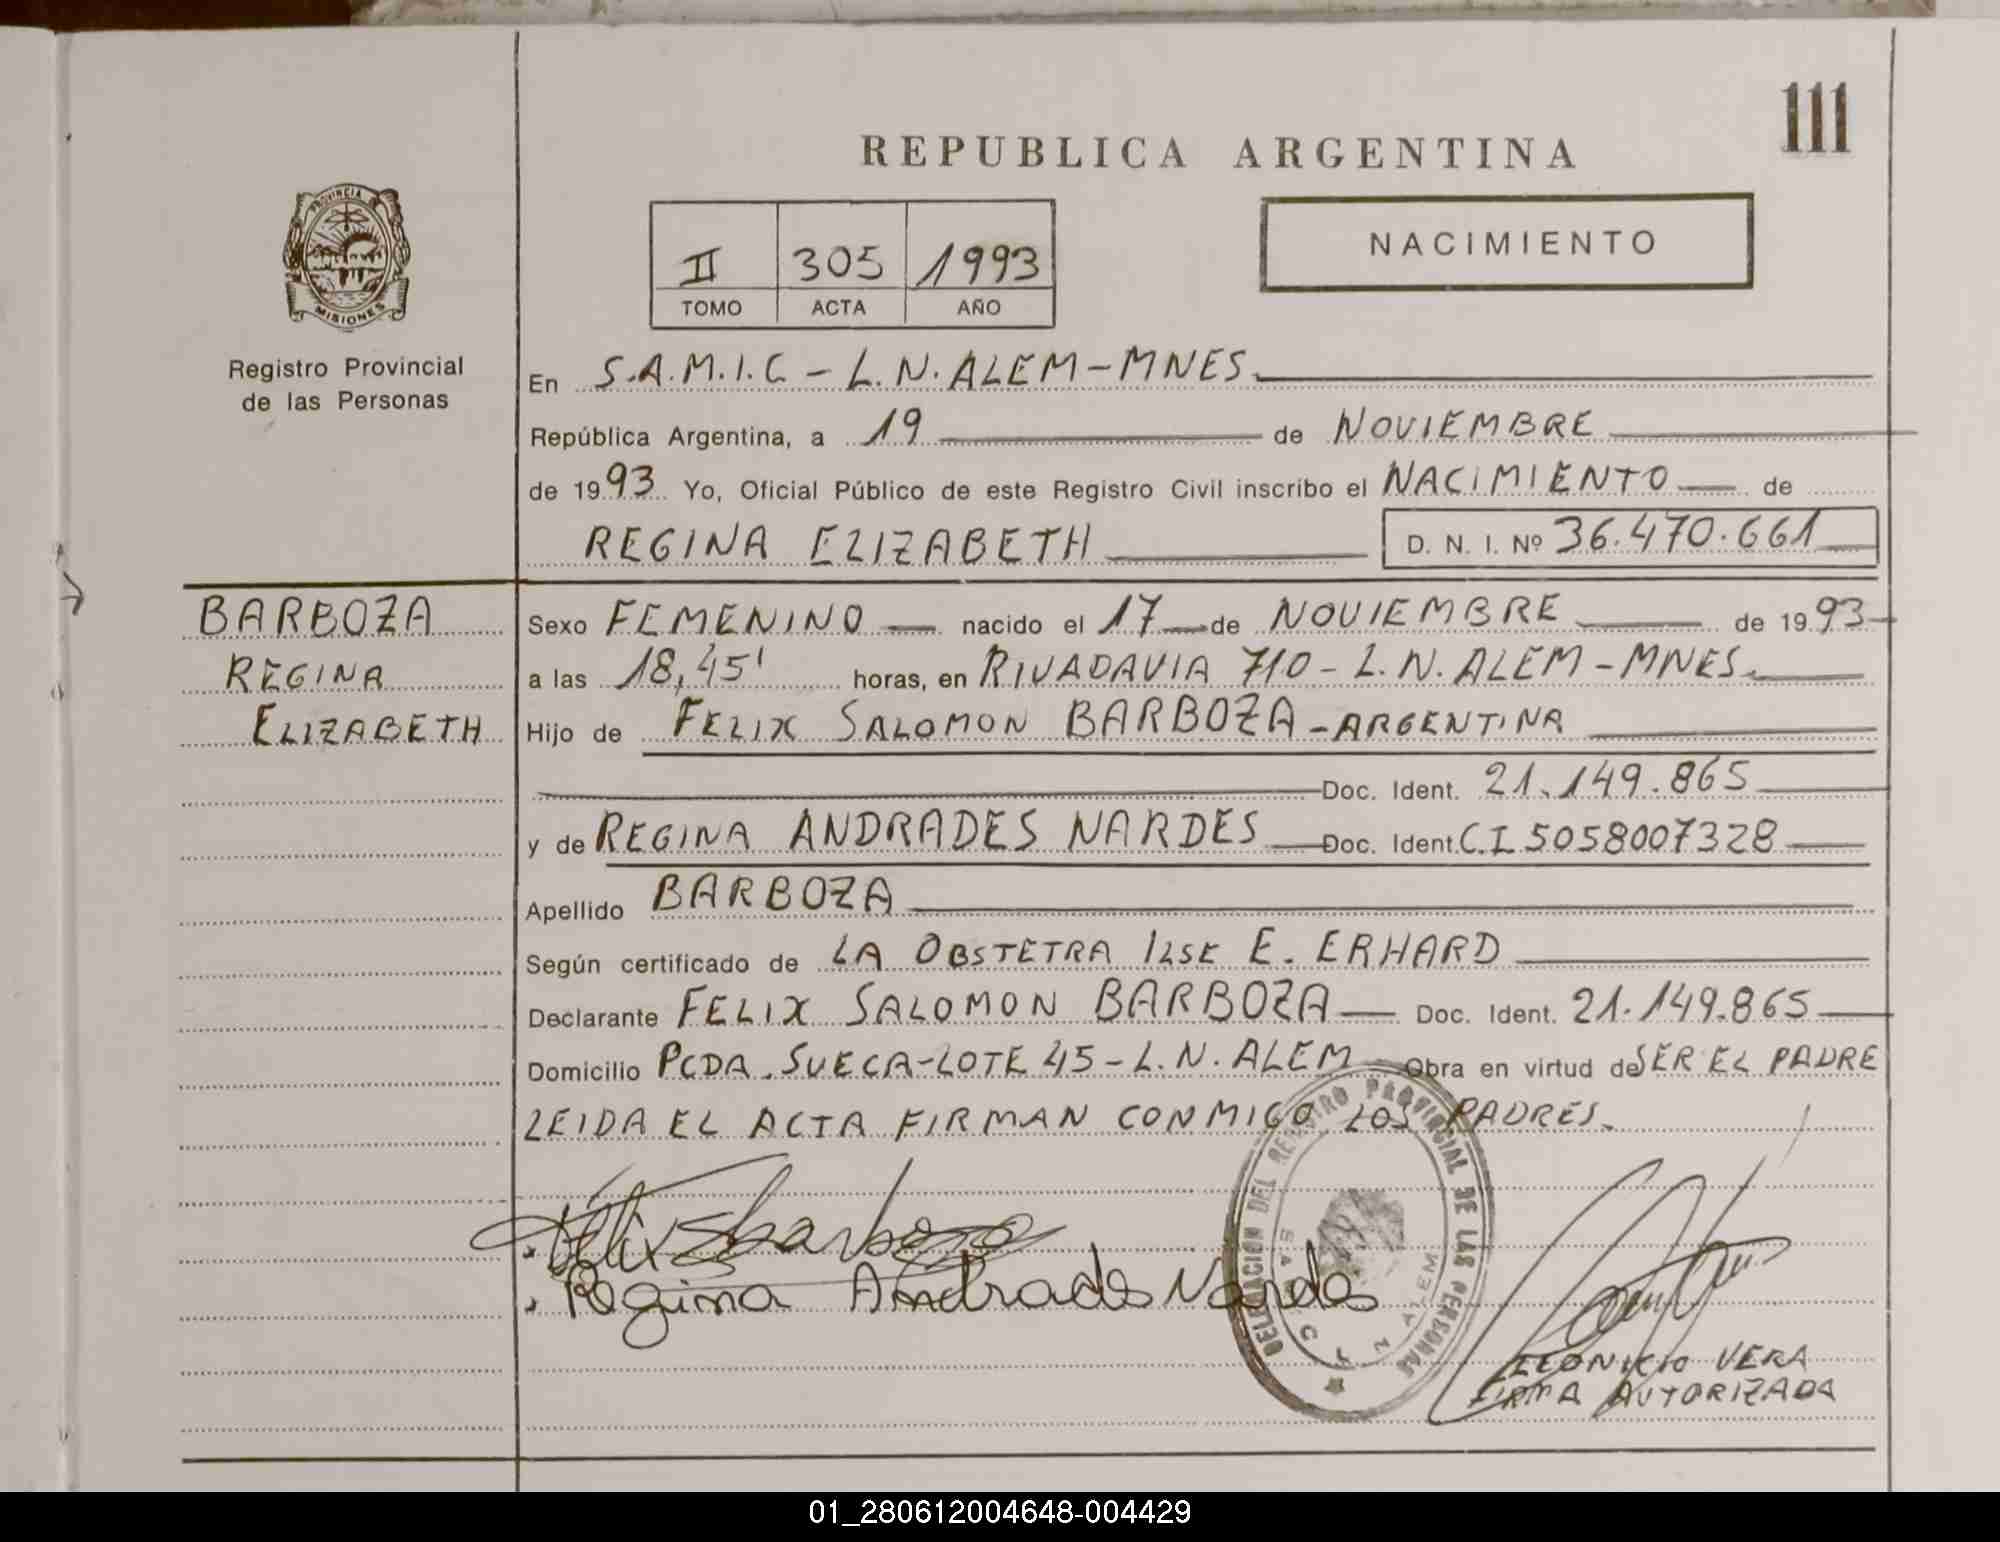 111
REPUBLICA ARGENTINA
PROVINCIA DE
MISIONES
Registro Provincial
de las Personas
II 305 1993
TOMO ACTA AÑO
NACIMIENTO
En S.A.M.I.C - L.N. ALEM-MNES.
República Argentina, a 19 de NOVIEMBRE
de 1993 Yo, Oficial Público de este Registro Civil inscribo el NACIMIENTO de
REGINA ELIZABETH D. N. I. Nº 36.470.661
BARBOZA
REGINA
ELIZABETH
Sexo FEMENINO nacido el 17 de NOVIEMBRE de 1993
a las 18,45' horas, en RIVADAVIA 710 - L.N. ALEM - MNES.
Hijo de FELIX SALOMON BARBOZA - ARGENTINA
Doc. Ident. 21.149.865
y de REGINA ANDRADES NARDES Doc. Ident. C.I. 5058007328
Apellido BARBOZA
Según certificado de LA OBSTETRA ILSE E. ERHARD
Declarante FELIX SALOMON BARBOZA Doc. Ident. 21.149.865
Domicilio PCDA. SUECA-LOTE 45 - L.N. ALEM Obra en virtud de SER EL PADRE
LEIDA EL ACTA FIRMAN CONMIGO LOS PADRES.
Felix S Barboza
Regina Andrades Nardes
DELEGACIÓN DEL REGISTRO PROVINCIAL DE LAS PERSONAS
N. ALEM
LEONICIO VERA
FIRMA AUTORIZADA
01_280612004648-004429